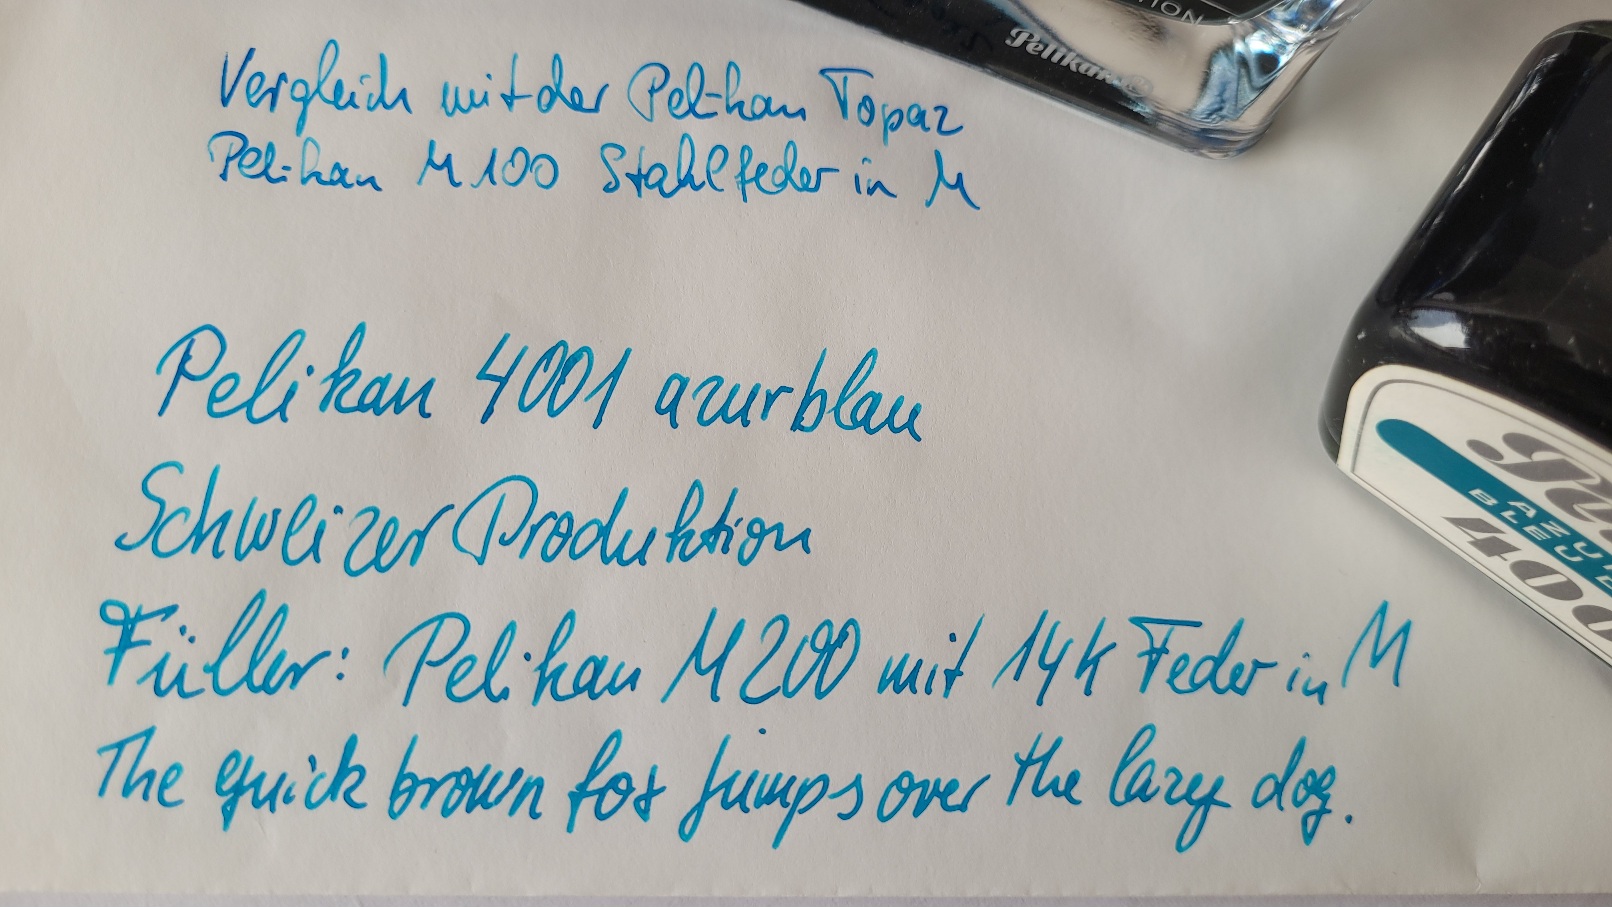 TION
Pelikan
Vergleich mit der Pelikan Topaz
Pelikan M100 Stahlfeder in M
Pelikan 4001 azurblau
Schweizer Produktion
Füller: Pelikan M200 mit 14k Feder in M
The quick brown fox jumps over the lazy dog.
AZUR
BLEU
400